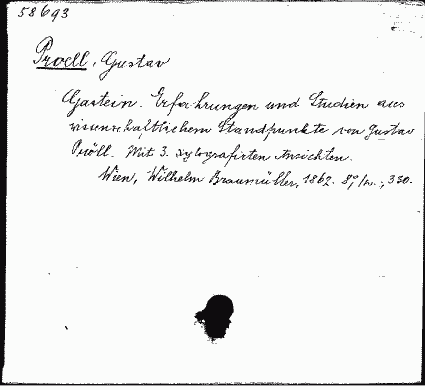 58693
Proell, Gustav
Gastein. Erfahrungen und Studien aus
wissenschaftlichem Standpunkte von Gustav
Pröll. Mit 3. xylografirten Ansichten.
Wien, Wilhelm Braumüller, 1862. 8°, 350.